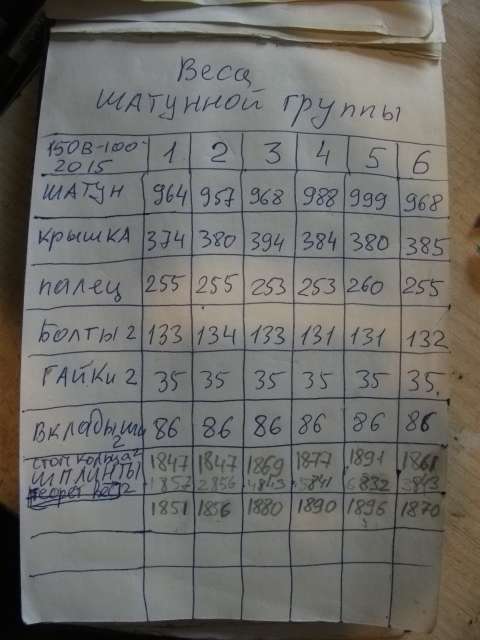 Веса
шатунной группы
150В-100
2015 1 2 3 4 5 6
шатун 964 957 968 988 999 968
крышка 374 380 394 384 380 385
палец 255 255 253 253 260 255
Болты 2 133 134 133 131 131 132
гайки 2 35 35 35 35 35 35
вкладыши 2 86 86 86 86 86 86
стоп кольца 2 1847 1847 1869 1877 1891 1861
шплинты 1857 832
1851 1856 1880 1890 1896 1870